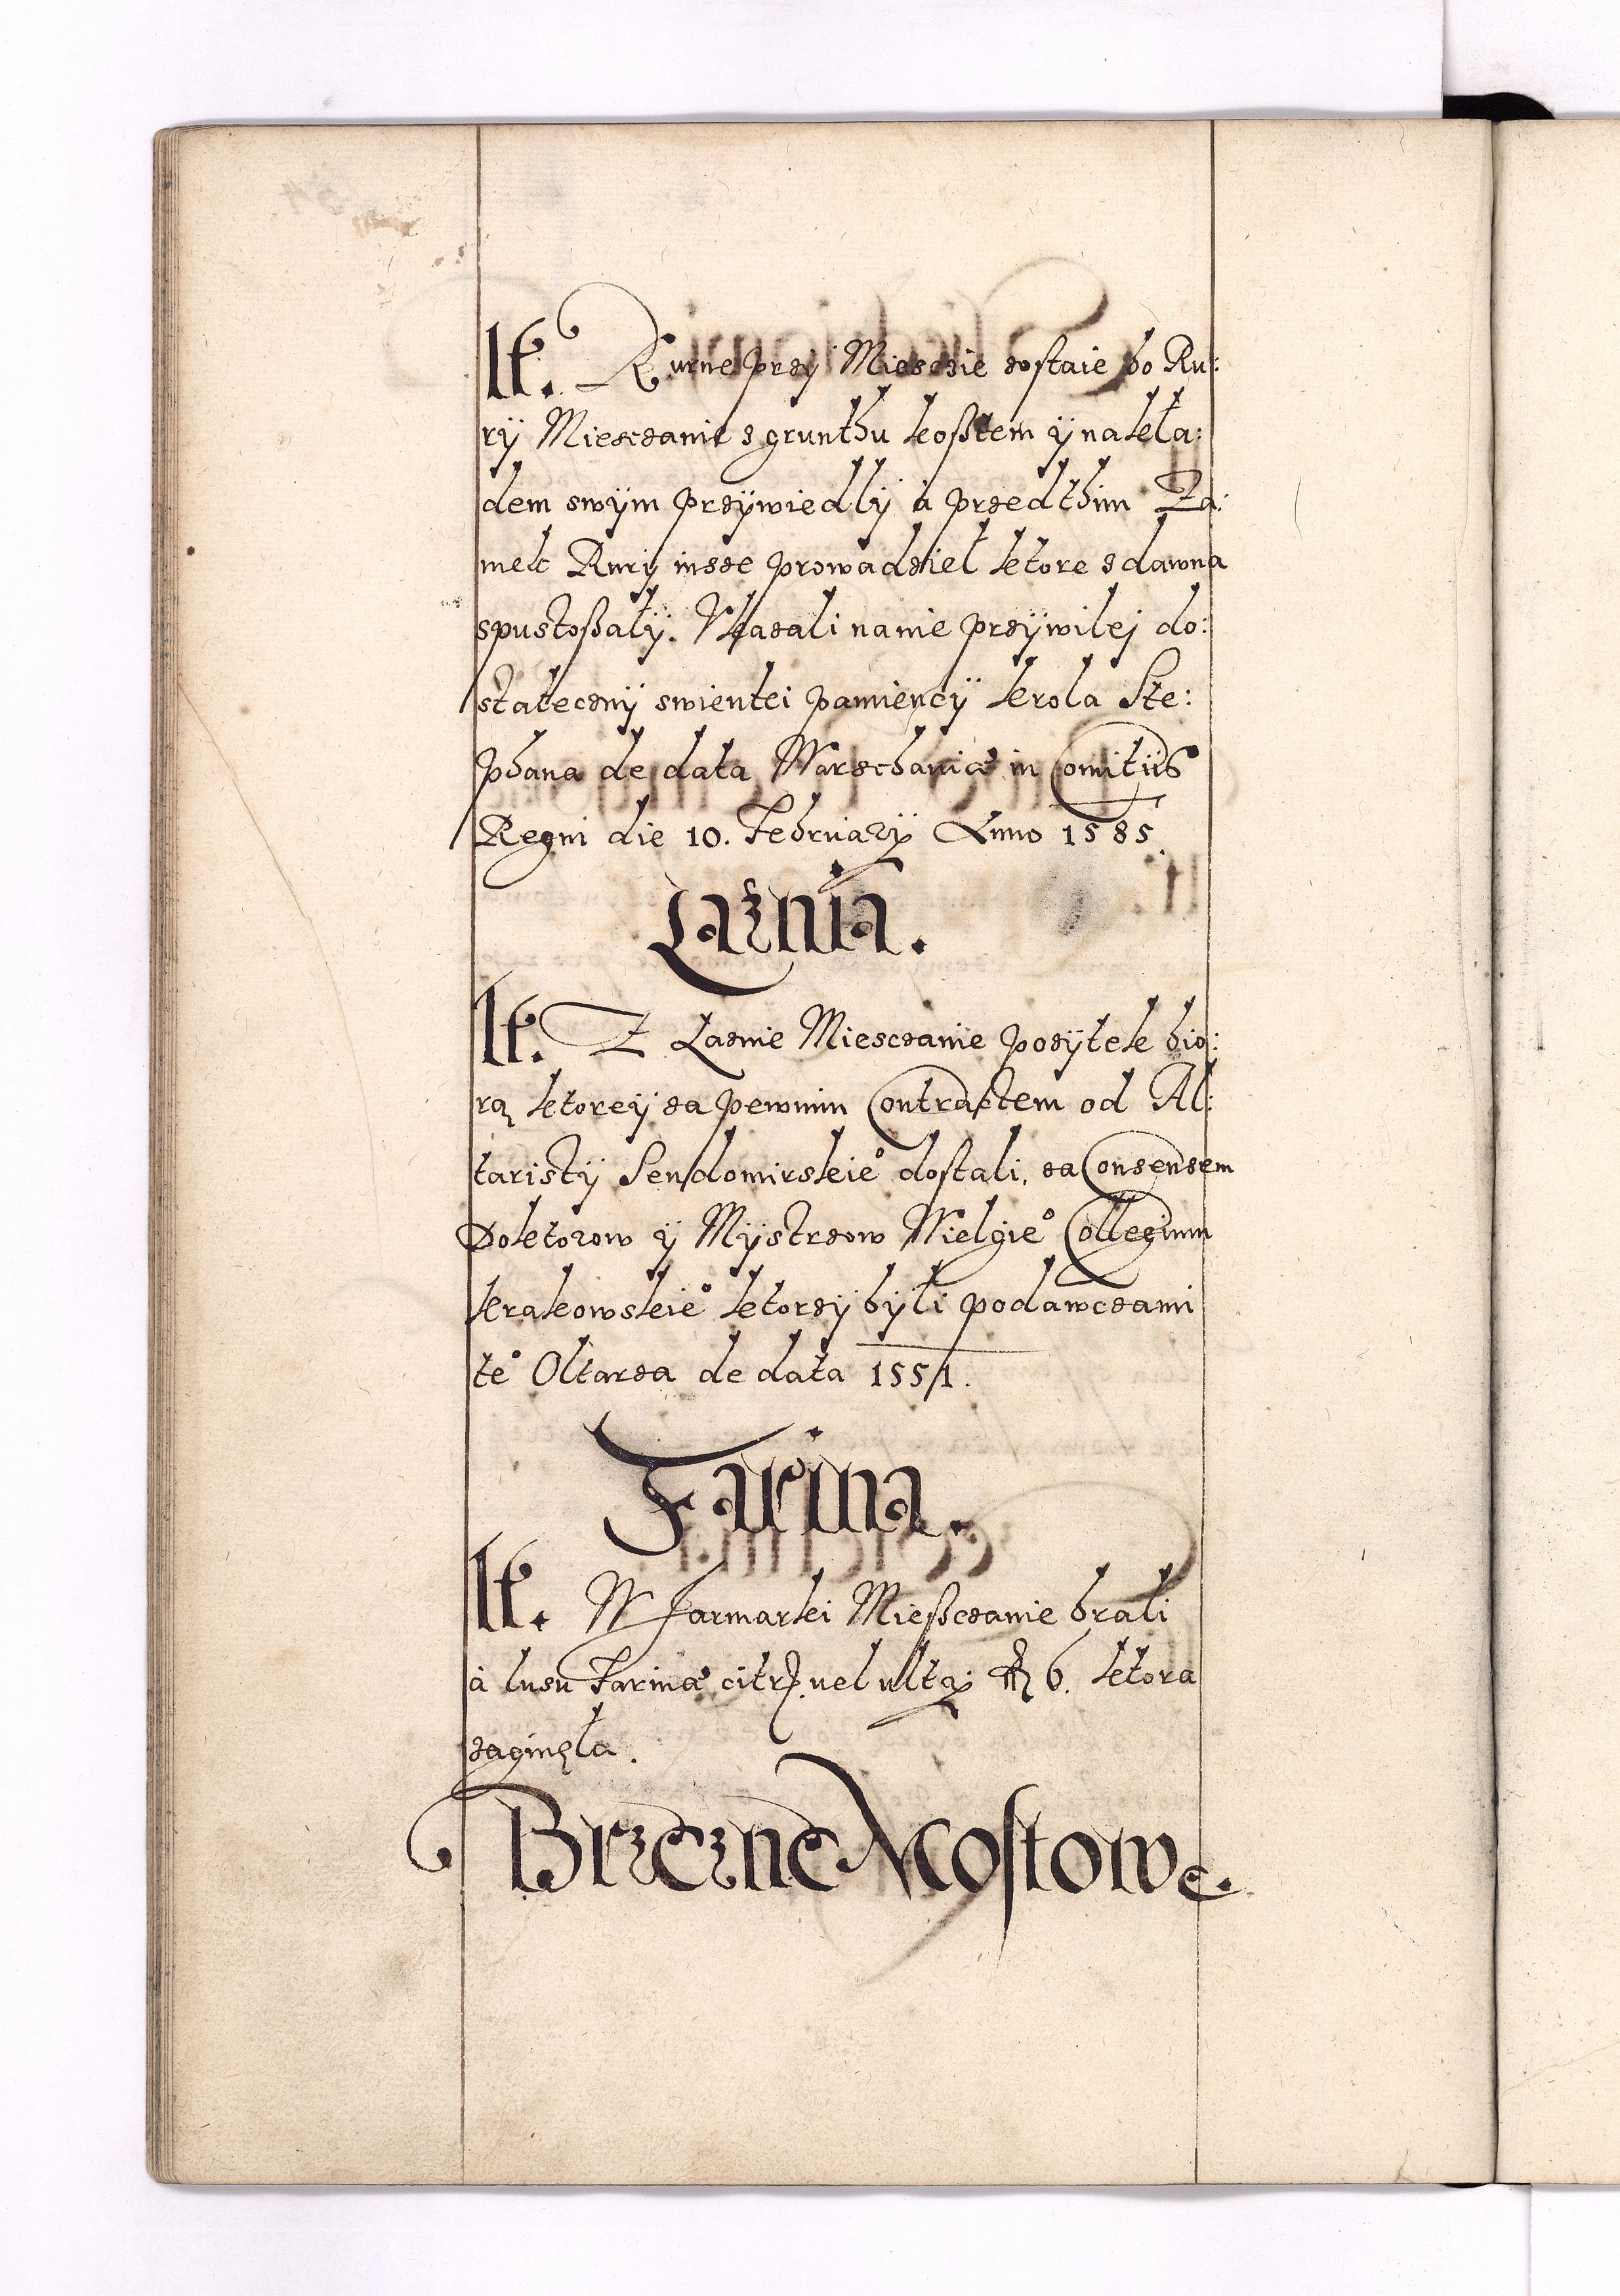 It. Rurne przÿ Miesczie zostaie bo Ru:
rÿ Miesczanie z grunthu kosztem ÿ nakła:
dem swÿm przÿwiedlÿ à przedthim Za:
mek Rurÿ insze prowadzieł ktore zdawna
spustoszałÿ. Vkazali na nie przÿwilej do:
statecznÿ swientei pamiencÿ krola Ste:
phana de data Warschaviæ in Comitiis
Regni die 10. Februarÿ Anno 1585.
Łaznia.
It. Z Łaznie Miesczanie pozÿtek bio:
rą ktoreÿ za pewnim Contractem od Al:
taristÿ Sendomirskie° dostali, za Consensem
Doktorow ÿ Mÿstrzow Wielgie° Collegium
krakowskie° ktorzÿ bÿli podawczami
te° Oltarza de data 1551.
Farina.
It. W Jarmarki Mieszczanie brali
à lusu Farinæ citr. uel ultra fl 6. ktora
zaginęła.
Brzezne Mostowe.